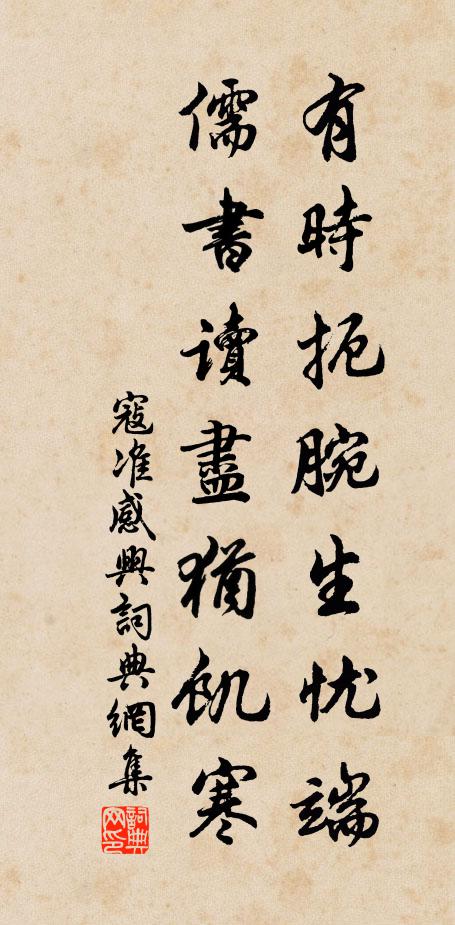 有時扼腕生忧端
儒書讀盡猶飢寒
寇准感興詞典網集
詞典網印